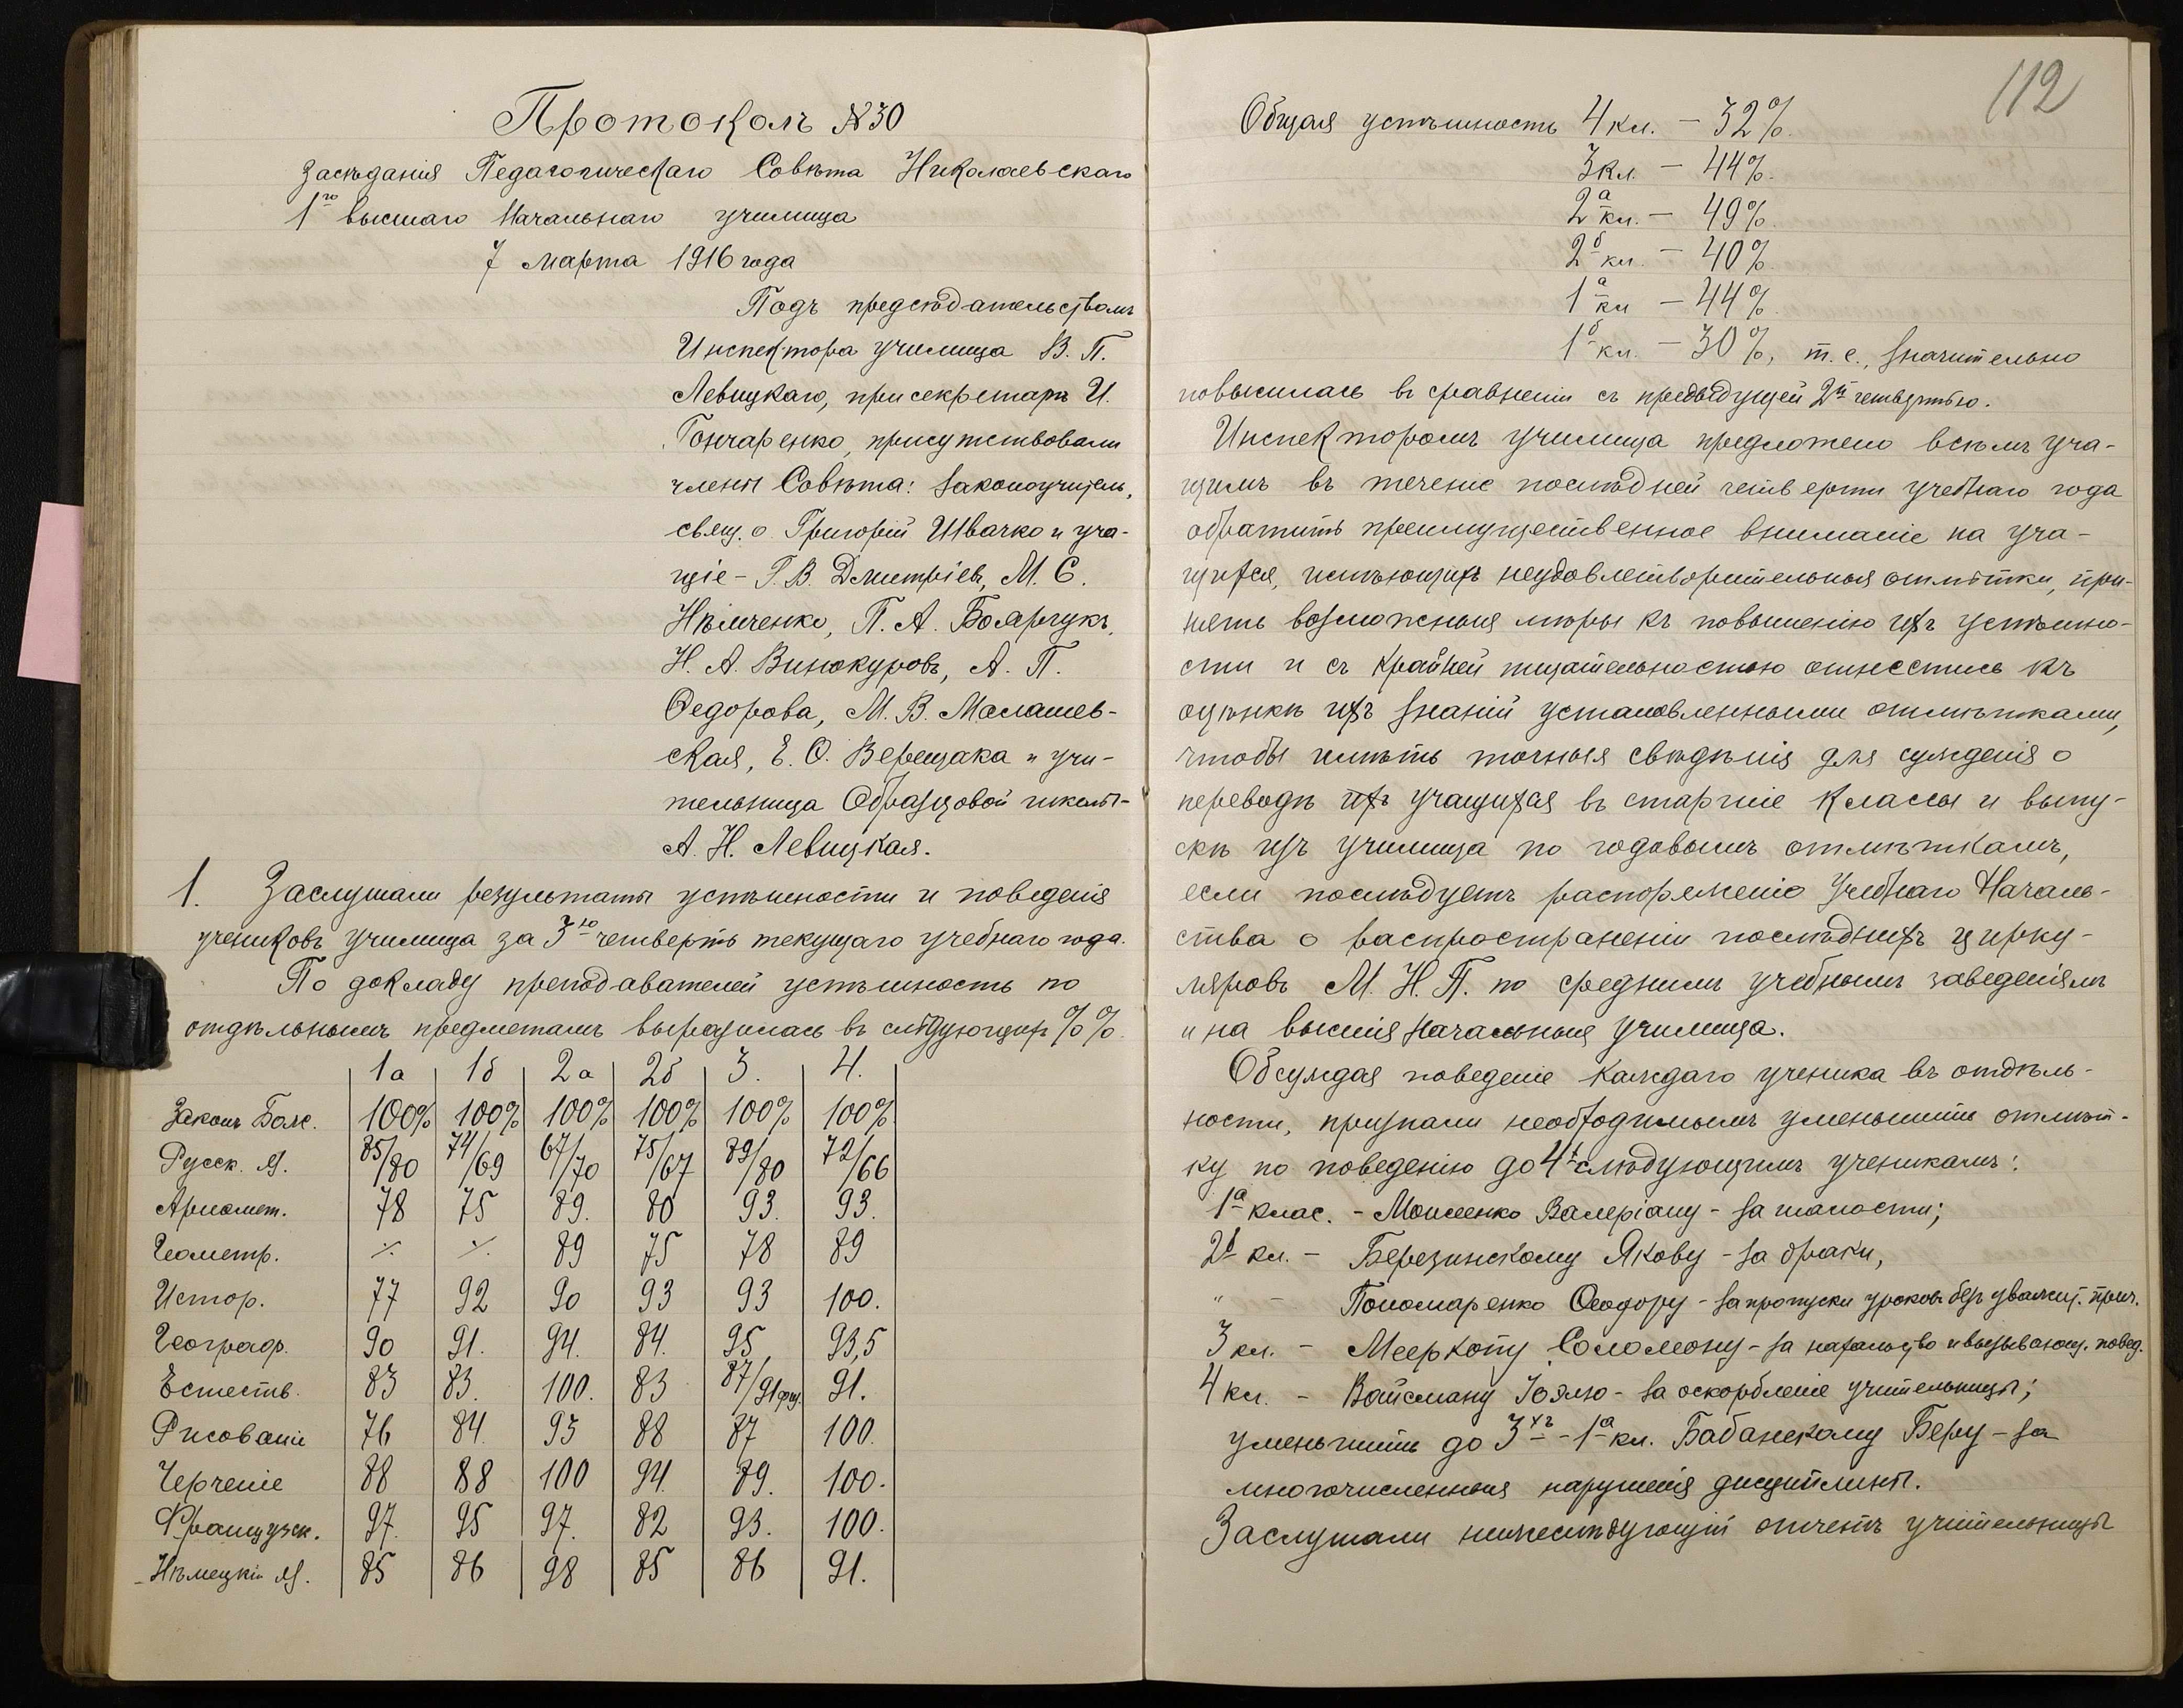 Протоколъ №30
засѣданія Педагогическаго Совѣта Николаевскаго
1го высшаго Начальнаго училища
7 марта 1916 года
Подъ предсѣдательствомъ
Инспектора училища В. П.
Левицкаго, при секретарѣ И.
Гончаренко, присутствовали
члены Совѣта: законоучитель,
свящ. о. Григорій Ивачко и уча-
щіе - Г. В. Дмитріевъ, М. С.
Нѣмченко, П. А. Боярчукъ,
Н. А. Винокуровъ, А. П.
Ѳедорова, М. В. Малашев-
ская, Е. О. Верещака и учи-
тельница Образцовой школы -
А. Н. Левицкая.
1. Заслушали результаты успѣшности и поведенія
учениковъ училища за 3ю четверть текущаго учебнаго года.
По докладу преподавателей успѣшность по
отдѣльнымъ предметамъ выразилась въ слѣдующихъ %%.
1а 1б 2а 2б 3. 4.
Законъ Бож. 100% 100% 100% 100% 100% 100%
Русск. Я. 85/80 74/69 67/70 75/67 89/80 72/66
Ариѳмет. 78 75 89. 80 93. 93.
Геометр. ٪ ٪ 89 75 78 89
Истор. 77 92 90 93 93 100.
Географ. 90 91. 94. 84. 95. 93,5
Естеств. 83 83. 100. 83 87/91 физ. 91.
Рисованіе 76 84. 93 88 87 100.
Черченіе 88 88 100 94. 89. 100.
Французск. 97. 95 97. 82 93. 100.
Нѣмецкій Я. 85 86 98 85 86 91.
112
Общая успѣшность 4 кл. - 32%.
3 кл. - 44%.
2а кл. - 49%.
2б кл. - 40%.
1а кл - 44%.
1б кл. - 30%, т. е., значительно
повысилась въ сравненіи съ предыдущей 2й четвертью.
Инспекторомъ училища предложено всѣмъ уча-
щимъ въ теченіе послѣдней четверти учебнаго года
обратить преимущественное вниманіе на уча-
щихся, имѣющихъ неудовлетворительныя отмѣтки, при-
нять возможныя мѣры къ повышенію ихъ успѣшно-
сти и съ крайней тщательностью отнестись къ
оцѣнкѣ ихъ знаній установленными отмѣтками,
чтобы имѣть точныя свѣдѣнія для сужденія о
переводѣ ихъ учащихся въ старшіе классы и выпу-
скѣ изъ училища по годовымъ отмѣткамъ,
если послѣдуетъ распоряженіе Учебнаго Началь-
ства о распространеніи послѣднихъ цирку-
ляровъ М. Н. П. по среднимъ учебнымъ заведеніямъ
и на высшія начальныя училища.
Обсуждая поведеніе каждаго ученика въ отдѣль-
ности, признали необходимымъ уменьшить отмѣт-
ку по поведенію до 4х слѣдующимъ ученикамъ:
1а клас. - Моисеенко Валеріану - за шалости;
2б кл. - Березинскому Якову - за драки,
" - Пономаренко Ѳеодору - за пропуски уроковъ безъ уважит. прич.
3 кл. - Мееркопу Соломону - за нахальство и вызывающ. повед.
4 кл. - Вайсману Іоэлю - за оскорбленіе учительницы;
уменьшить до 3хъ - 1а кл. Бабанскому Беру - за
многочисленныя нарушенія дисциплины.
Заслушали нижеслѣдующій отчетъ учительницы